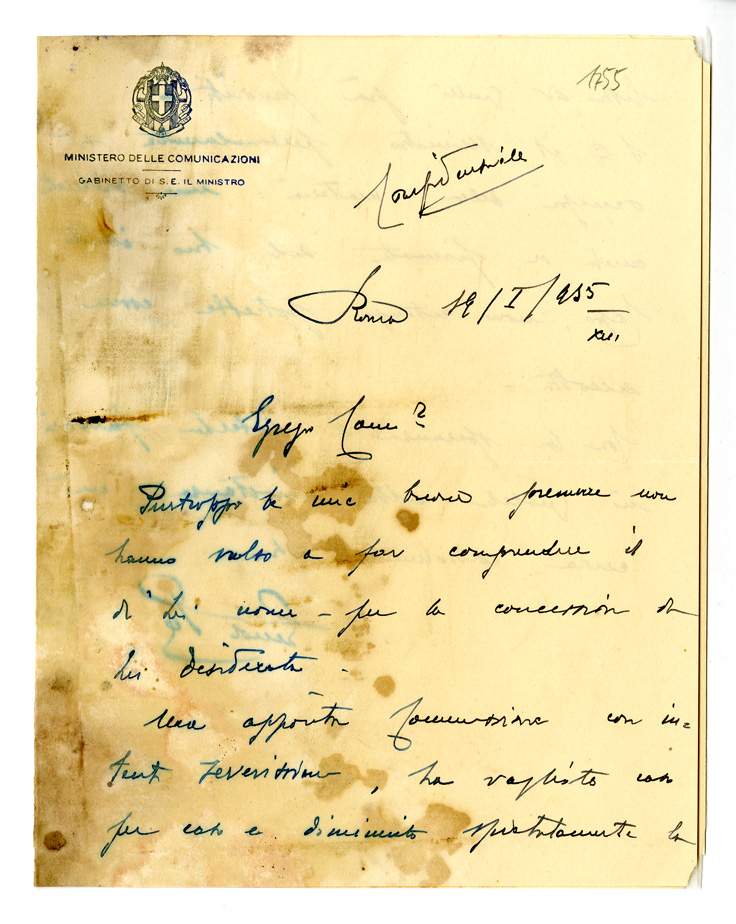 1755
MINISTERO DELLE COMUNICAZIONI
GABINETTO DI S. E. IL MINISTRO
Confidenziale
Roma 19/I/935
XIII
Egregio Comm.
Purtroppo le mie buone premure non
hanno valso a far comprendere il
di Lei nome - per la concessione da
Lei desiderata.
Una apposita Commissione con in=
tenti severissimi, ha vagliato caso
per caso e diminuito spietatamente la